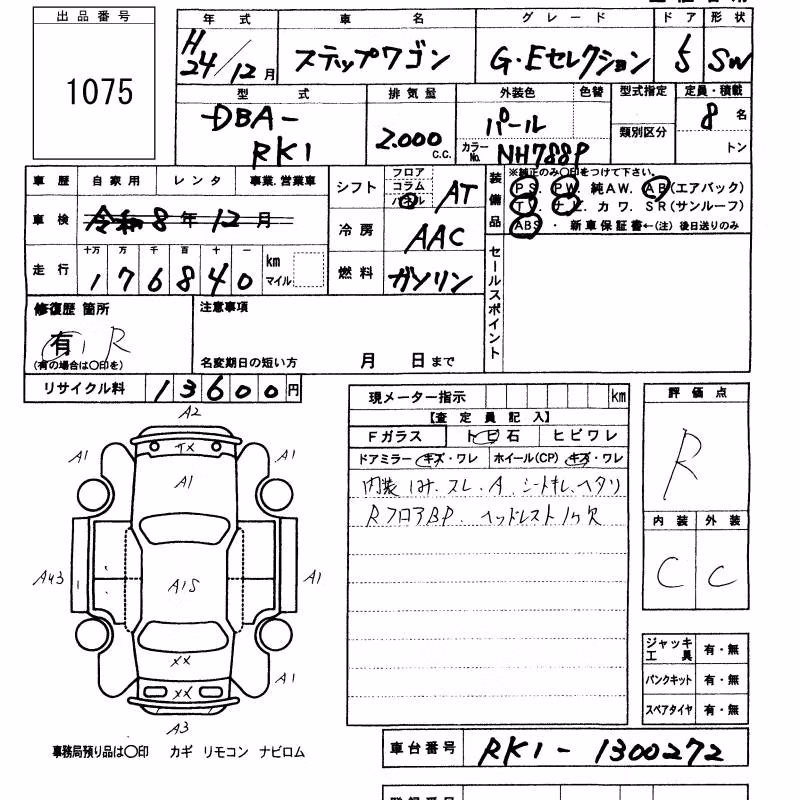 出品番号
1075
年式 車名 グレード ドア 形状
H24/12月 ステップワゴン G・Eセレクション 5 SW
型式 排気量 外装色 色替 型式指定 定員・積載
DBA-RK1 2.000 c.c. パール 類別区分 8名
カラーNo. NH788P トン
車歴 自家用 レンタ 事業.営業車
シフト フロア コラム パネル AT
装備品 ※純正のみ○印をつけて下さい。
PS. PW. 純AW. AB(エアバック)
TV. ナビ. カワ. SR(サンルーフ)
ABS ・ 新車保証書←(注) 後日送りのみ
車検 令和8年12月
冷房 AAC
走行 十万 万 千 百 十 一 km マイル
176840
燃料 ガソリン
セールスポイント
修復歴 箇所
有 R
(有の場合は○印を)
注意事項
名変期日の短い方 月 日まで
リサイクル料 13600円
現メーター指示 km
【査定員記入】
Fガラス トビ石 ヒビワレ
ドアミラー キズ・ワレ ホイール(CP) キズ・ワレ
内装 ヨゴレ. スレ. A. シートキレ. ヘタリ
RフロアBP. ヘッドレスト1ケ欠
評価点
R
内装 外装
C C
A2
A1 TX A1
A1
A43 A1S A1
XX
A1 XX A1
A3
ジャッキ工具 有・無
パンクキット 有・無
スペアタイヤ 有・無
事務局預り品は○印 カギ リモコン ナビロム
車台番号 RK1-1300272